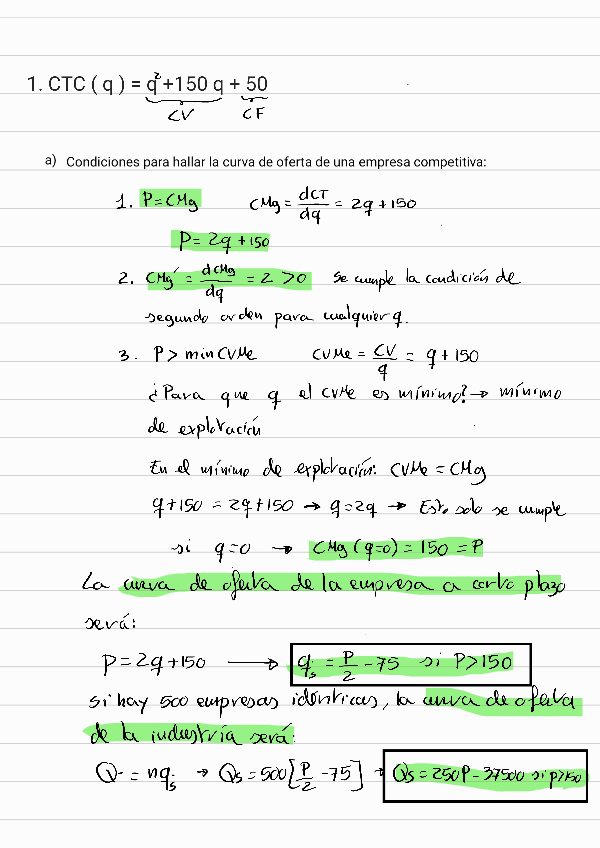 1. CTC ( q ) = q²+150 q + 50
CV CF
a) Condiciones para hallar la curva de oferta de una empresa competitiva:
1. P=CMg CMg = dCT/dq = 2q+150
P= 2q+150
2. CMg' = dCMg/dq = 2 >0 Se cumple la condición de
segundo orden para cualquier q.
3. P> minCVMe CVMe = CV/q = q+150
¿Para que q el CVMe es mínimo? → mínimo
de explotación
En el mínimo de explotación: CVMe = CMg
q+150 = 2q+150 → q=2q → Esto solo se cumple
si q=0 → CMg (q=0) = 150 = P
La curva de oferta de la empresa a corto plazo
será:
P=2q+150 → qs = P/2 -75 si P>150
Si hay 500 empresas idénticas, la curva de oferta
de la industria será:
Q = nqs → Qs=500[P/2 -75] → Qs=250P-37500 si p>150